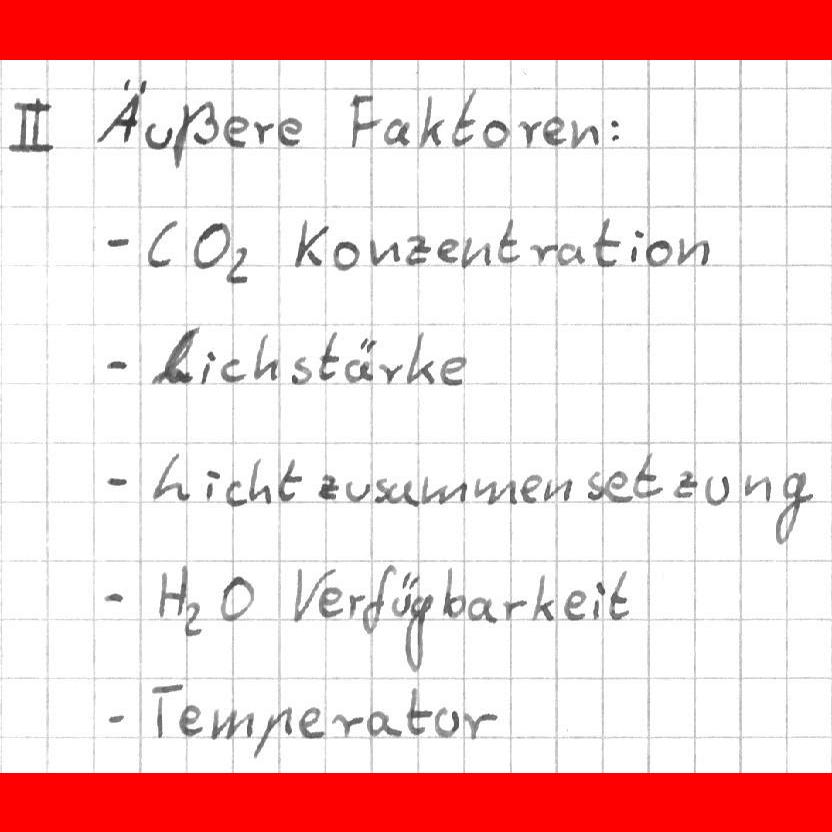 II Äußere Faktoren:
- CO₂ Konzentration
- Lichstärke
- Lichtzusammensetzung
- H₂O Verfügbarkeit
- Temperatur